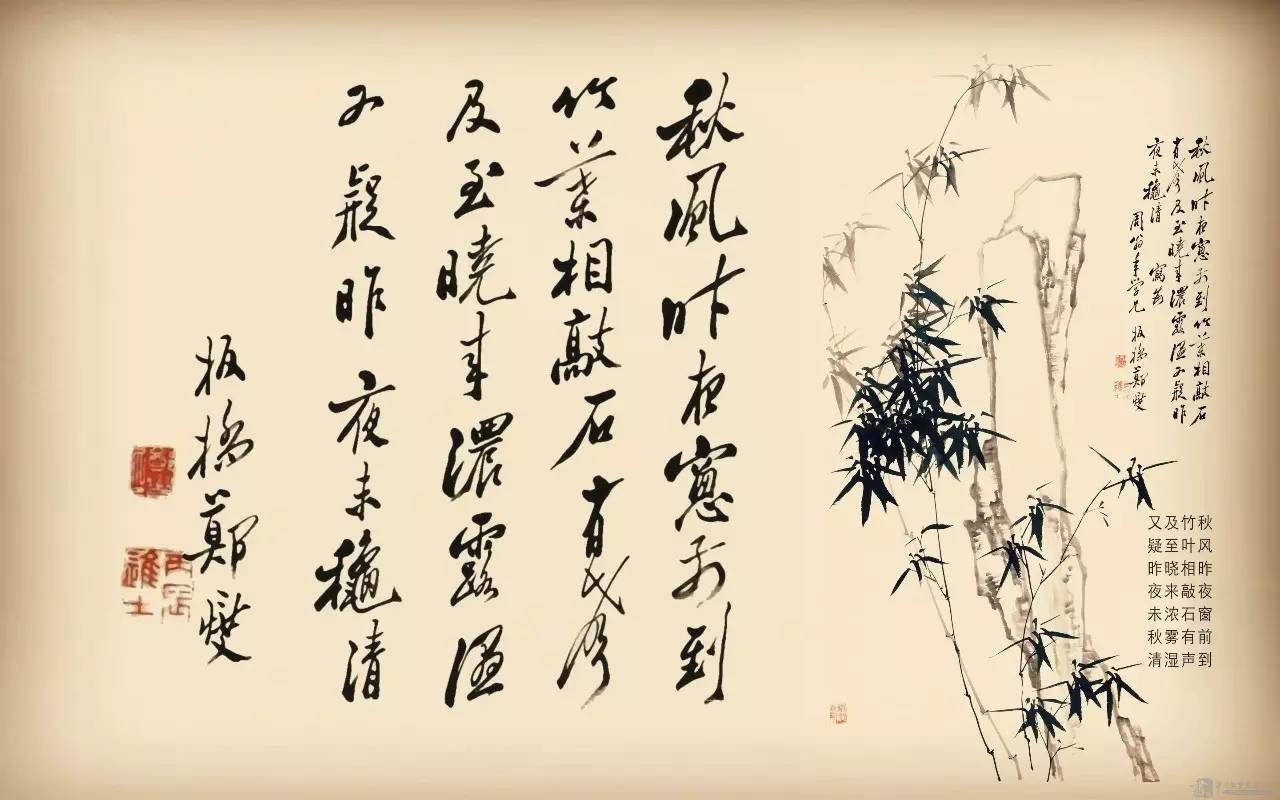 秋風昨夜窓前到
竹葉相敲石有聲
及至曉来濃露濕
又疑昨夜未穐清
板橋鄭燮
丙辰進士
秋風昨夜窓前到竹葉相敲石
有聲及至曉来濃露濕又疑昨
夜未穐清 寫為
周翁年學兄 板橋鄭燮
秋风昨夜窗前到
竹叶相敲石有声
及至晓来浓雾湿
又疑昨夜未秋清